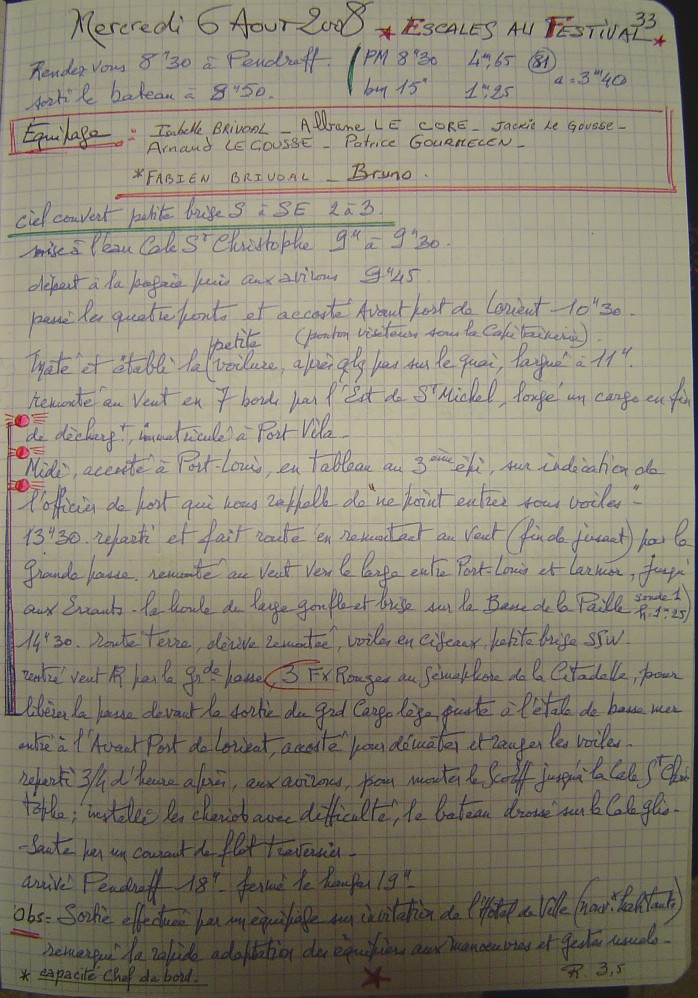 33
Mercredi 6 Aout 2008 ★ ESCALES AU FESTIVAL ★
Rendez vous 8"30 à Pendreff. PM 8"30 4m,65 (81)
sorti le bateau à 8"50. bm 15" 1m:25 a = 3m40
Equipage : Isabelle BRIVOAL _ Albane LE CORE _ Jackie Le Gousse _
Arnaud LE GOUSSE _ Patrice GOURMELEN _
*FABIEN BRIVOAL _ Bruno.
ciel couvert petite brise S à SE 2 à 3.
mise à l'eau Cale St Christophe 9" à 9"30.
départ à la pagaie puis aux avirons 9"45
passé les quatre ponts et accosté Avant port de Lorient 10"30.
(ponton visiteurs sous la Capitainerie)
mâté et établi la (petite voilure, après qlq pas sur le quai, largué à 11".
remonté au Vent en 7 bords par l'Est de St Michel, longé un cargo en fin
de déchargt, immatriculé à Port Vila _
Midi, accosté à Port-Louis, en tableau au 3ème épi, sur indication de
l'officier de port qui nous rappelle de "ne point entrer sous voiles" _
13"30. reparti et fait route en remontant au vent (fin de jusant) par la
Grande passe. remonté au Vent vers le large entre Port-Louis et Larmor, jusqu'
aux Errants. la houle du large gonfle et brise sur la Basse de la Paille (sonde 1 h = 1m:25)
14"30. route terre, dérive remontée, voiles en ciseaux, petite brise SSW.
rentré vent AR par la Grde passe (3 Fx Rouges au Sémaphore de la Citadelle, pour
libérer la passe devant la sortie du grd Cargo lège, juste à l'étale de basse mer
entré à l'Avant Port de Lorient, accosté pour démâter et ranger les voiles _
reparti 3/4 d'heure après, aux avirons, pour monter le Scorff jusqu'à la Cale St Chris
tophe ; installé les chariots avec difficulté, le bateau drossé sur la Cale glis-
-sante par un courant de flot traversier _
arrivé Pendreff 18" _ fermé le hangar 19" _
Obs = Sortie effectuée par un équipage sur invitation de l'Hôtel de Ville (nouv.x habitants)
remarqué la rapide adaptation des équipiers aux manoeuvres et gestes usuels _
* capacité Chef de bord. ★ R. 3,5